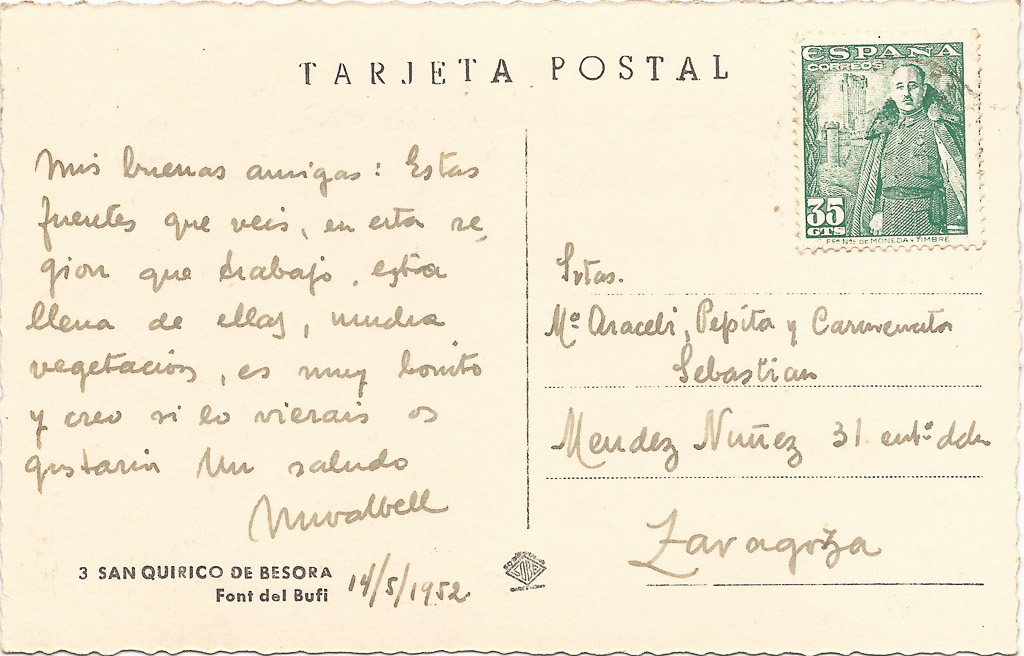 TARJETA POSTAL
ESPAÑA
CORREOS
35
CTS
FCA NAL DE MONEDA Y TIMBRE
Mis buenas amigas: Estas
fuentes que veis, en esta re,
gion que trabajo, esta
llena de ellas, mucha
vegetación, es muy bonito
y creo si lo vierais os
gustaria Un saludo
3 SAN QUIRICO DE BESORA
Font del Bufi
14/5/1952
SOBE
Srtas.
Mª Araceli, Pepita y
Sebastian
Mendez Nuñez 31 entº dcha
Zaragoza